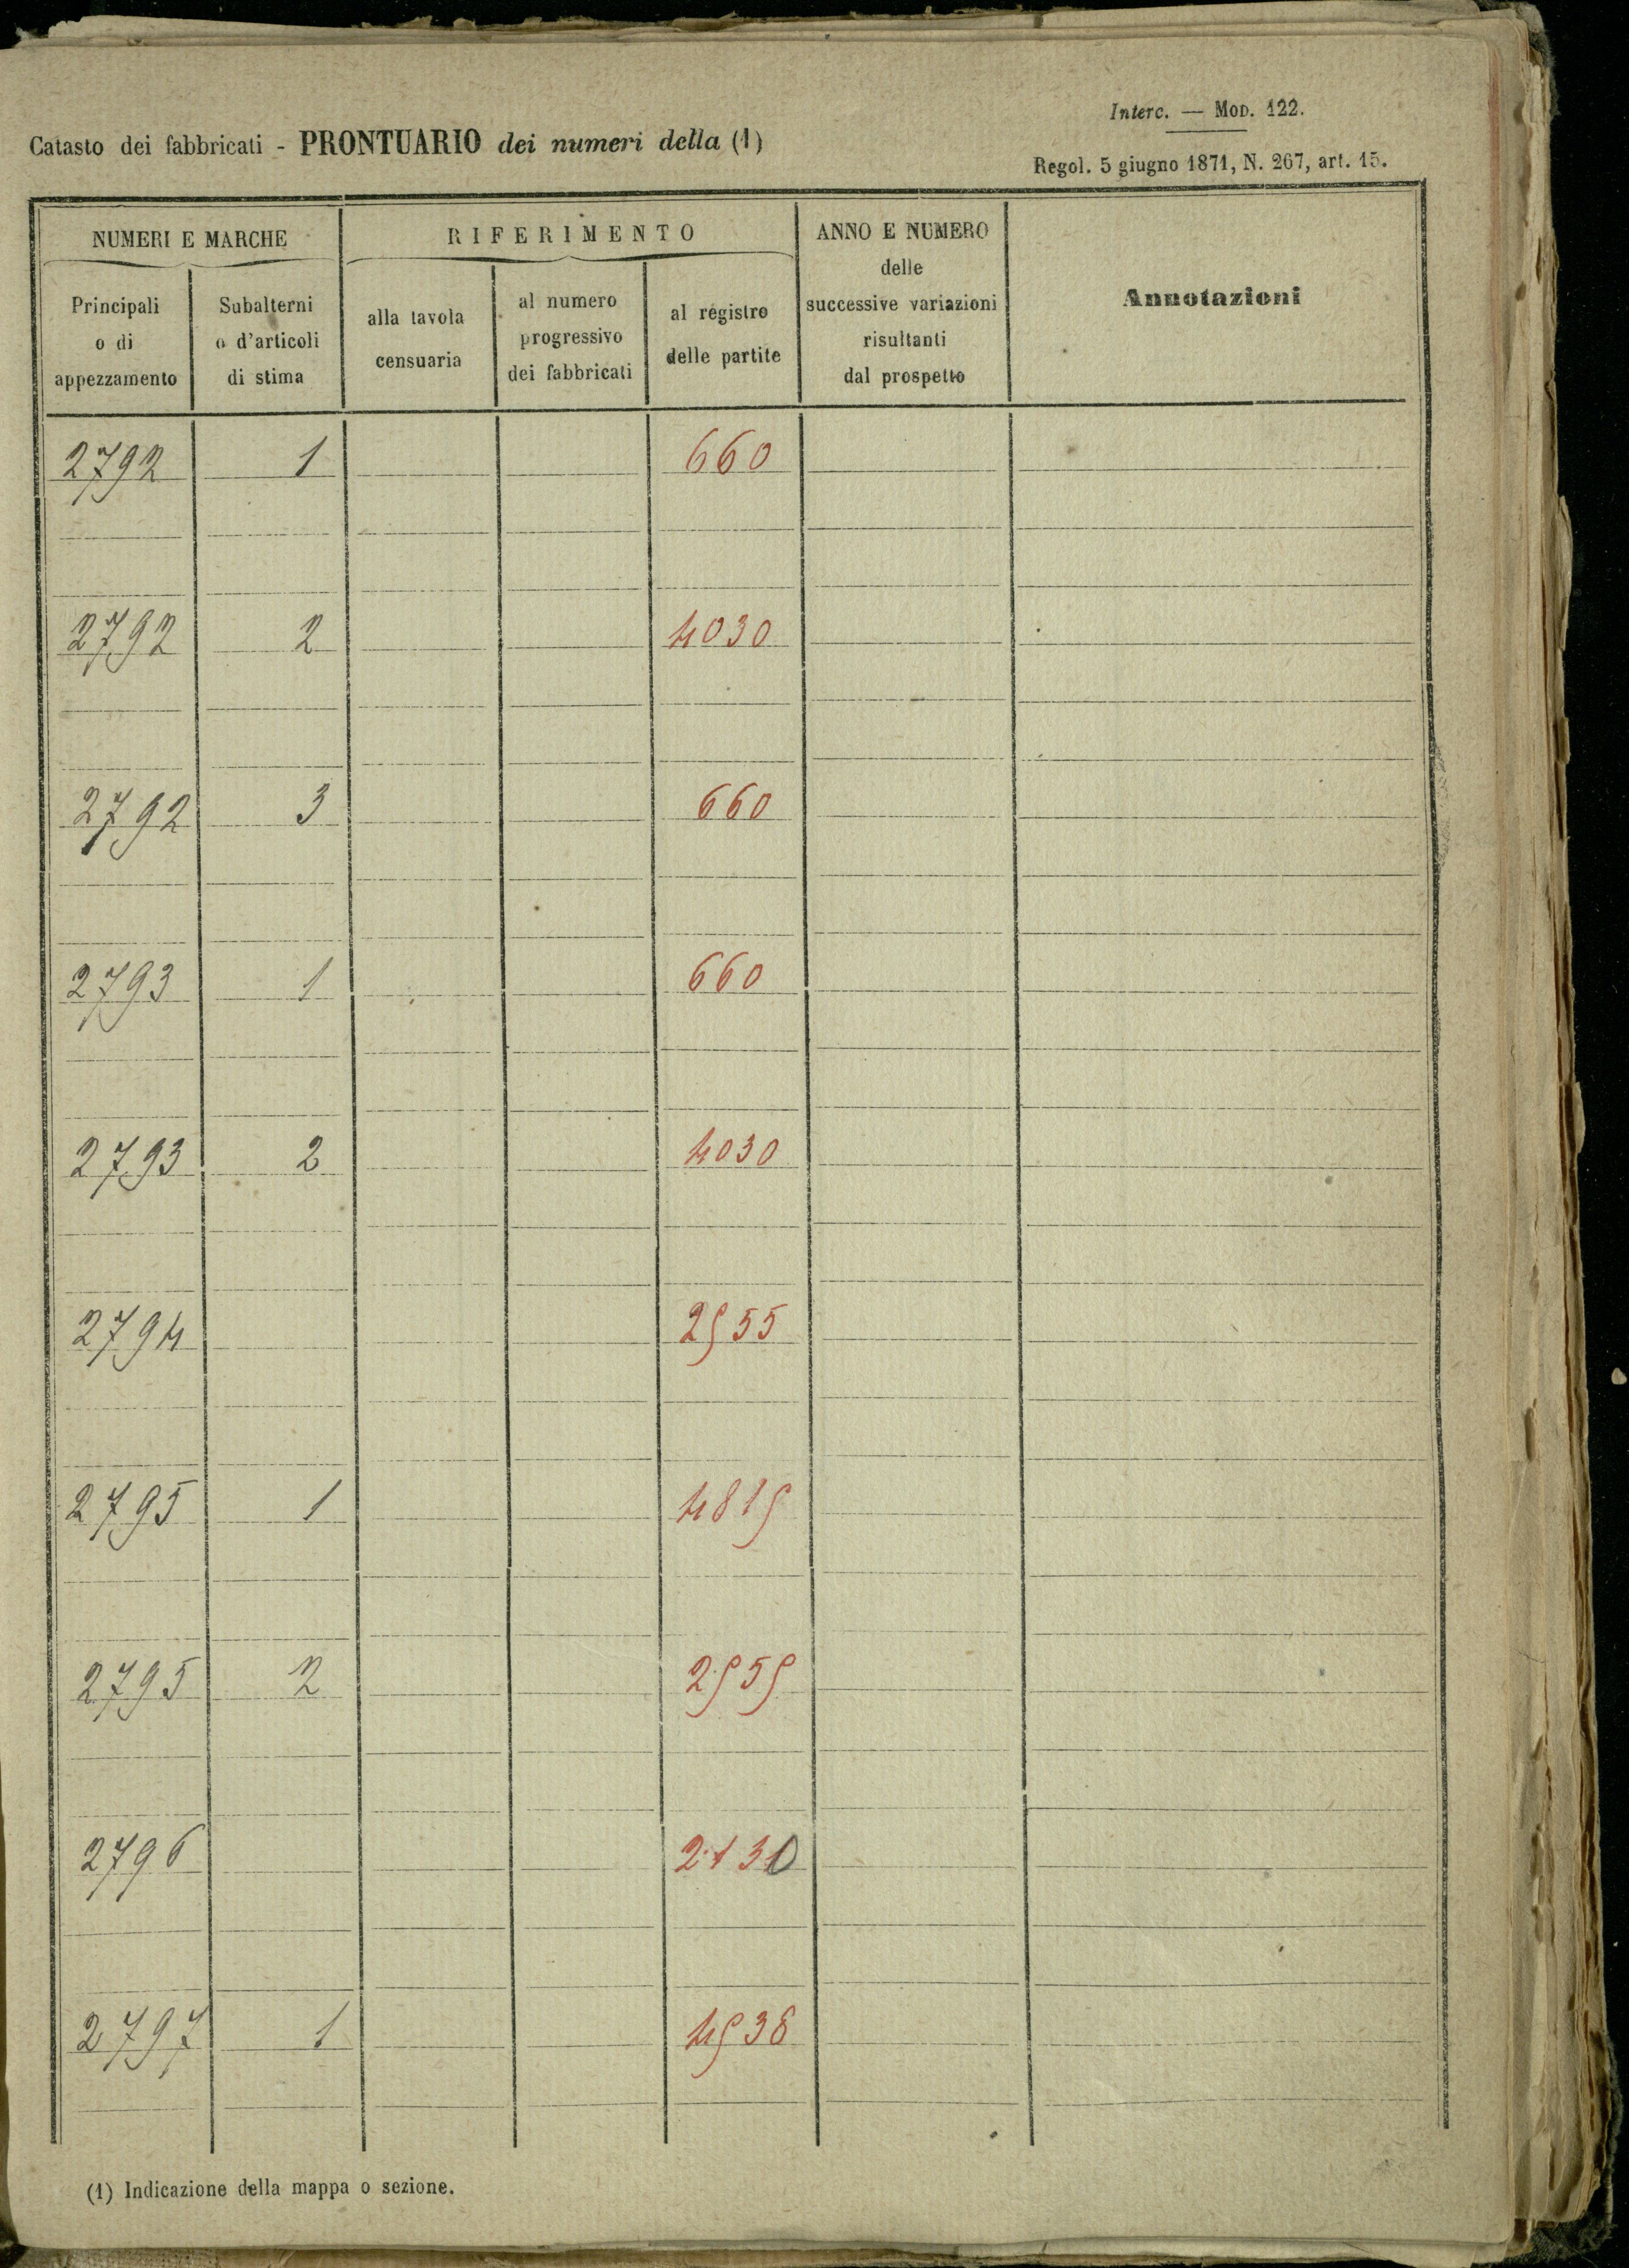 Interc. — Mod. 122.
Catasto dei fabbricati - PRONTUARIO dei numeri della (1)
Regol. 5 giugno 1871, N. 267, art. 15.
NUMERI E MARCHE
RIFERIMENTO
ANNO E NUMERO
delle
successive variazioni
risultanti
dal prospetto
Annotazioni
Principali
o di
appezzamento
Subalterni
o d'articoli
di stima
alla tavola
censuaria
al numero
progressivo
dei fabbricati
al registro
delle partite
2792 1 660
2792 2 4030
2792 3 660
2793 1 660
2793 2 4030
2794 2955
2795 1 4819
2795 2 2959
2796 2130
2797 1 4938
(1) Indicazione della mappa o sezione.